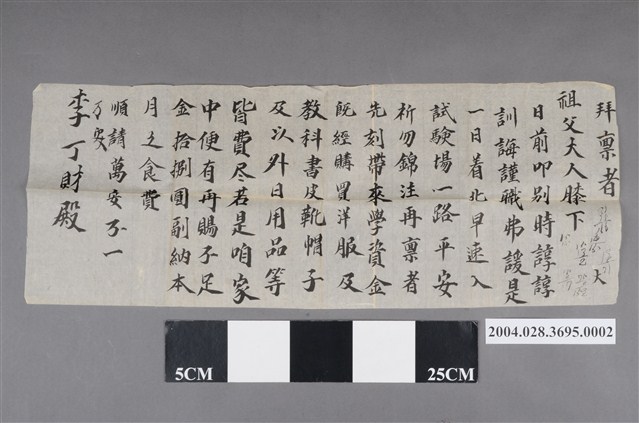 拜稟者 大
祖父大人膝下
日前叩別時諄諄
訓誨謹職弗諼是
一日着北早速入
試験場一路平安
祈勿錦注再稟者
先刻帶來學資金
既經購買洋服及
教科書皮靴帽子
及以外日用品等
皆費尽若是咱家
中便有再賜不足
金拾捌圓副納本
月之食費
順請萬安不一
李丁財殿
2004.028.3695.0002
5CM 25CM